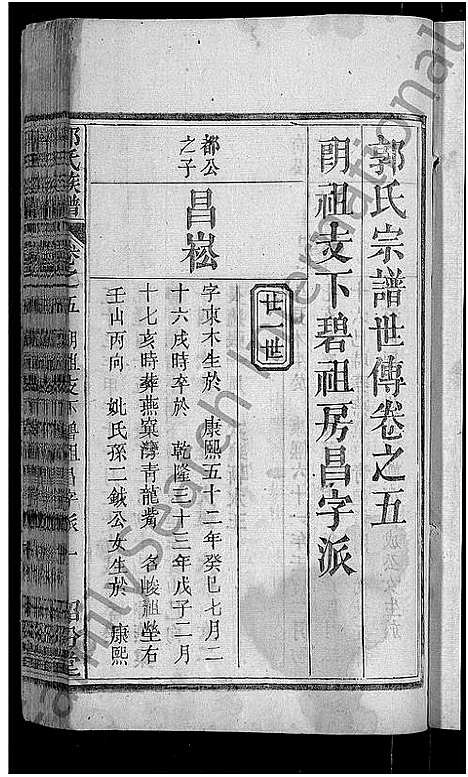 郭氏宗譜世傳卷之五
朗祖支下碧祖房昌字派
廿一世
都公之子
昌崧
字東木生於 康熙五十二年癸巳七月二
十六戌時卒於 乾隆三十三年戊子二月
十七亥時葬燕窩灣青龍嘴 名峻祖塋右
壬山丙向 妣氏孫二鉞公女生於 康熙
郭氏族譜 卷之五 朗祖支下碧祖昌字派 一
FamilySearch International